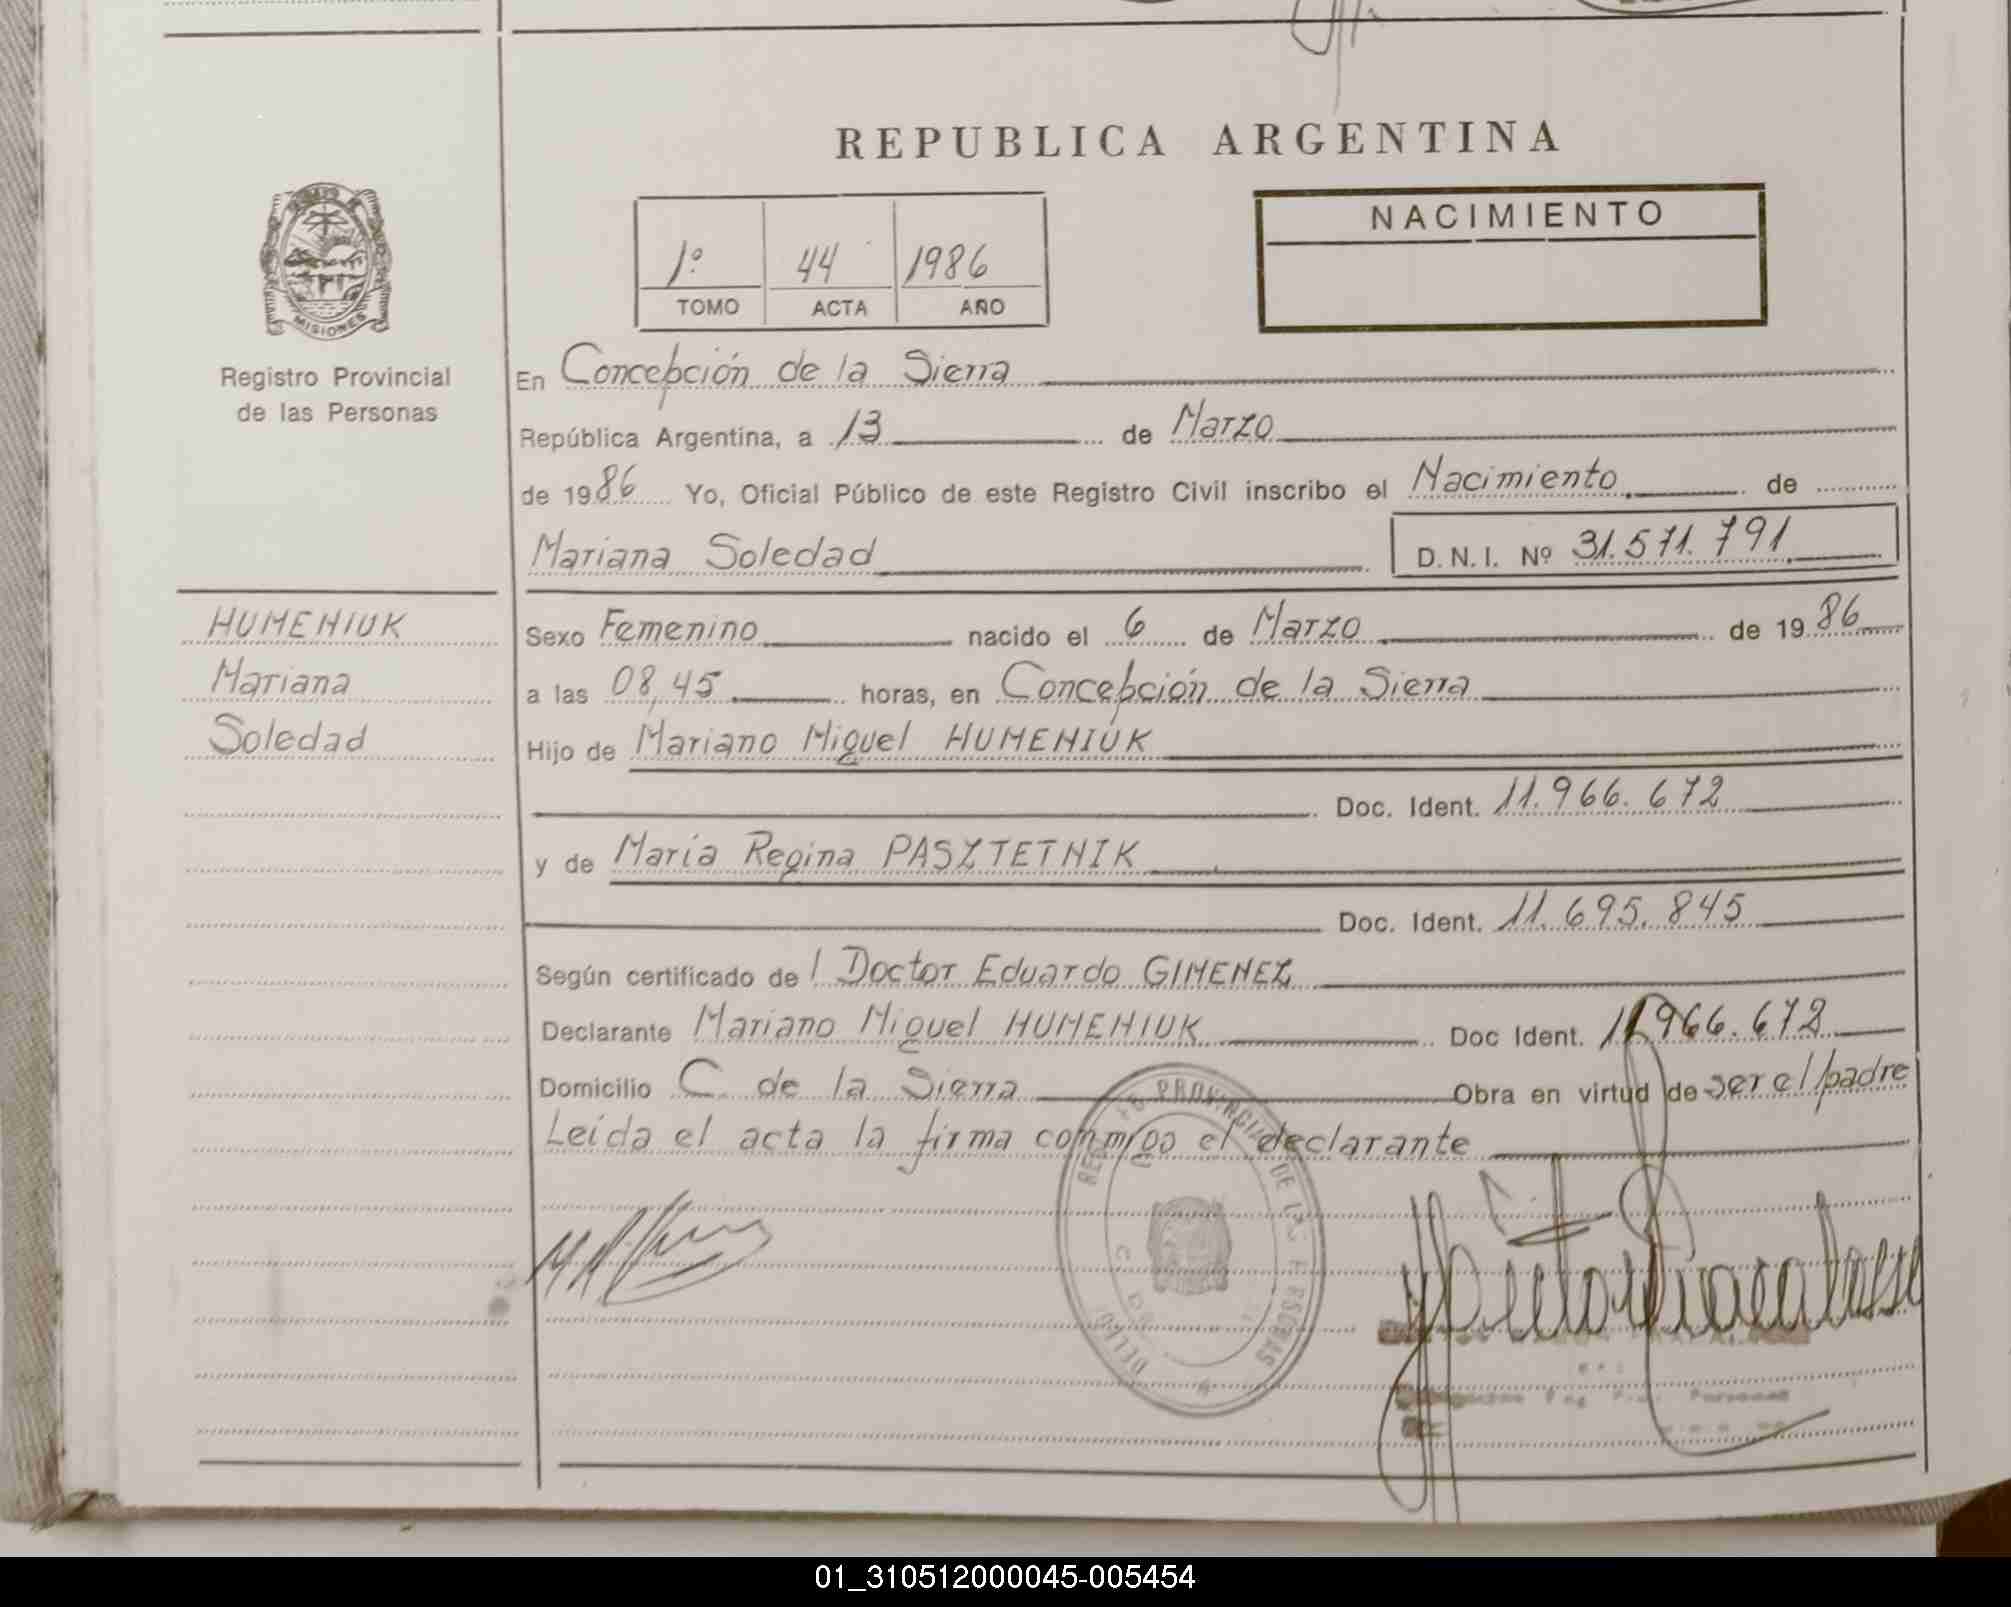 REPUBLICA ARGENTINA
MISIONES
Registro Provincial
de las Personas
1º 44 1986
TOMO ACTA AÑO
NACIMIENTO
En Concepción de la Sierra
República Argentina, a 13 de Marzo
de 1986 Yo, Oficial Público de este Registro Civil inscribo el Nacimiento de
Mariana Soledad D.N.I. Nº 31.571.791
HUMENIUK
Mariana
Soledad
Sexo Femenino nacido el 6 de Marzo de 1986
a las 08,45 horas, en Concepción de la Sierra
Hijo de Mariano Miguel HUMENIUK
Doc. Ident. 11.966.672
y de María Regina PASZTETNIK
Doc. Ident. 11.695.845
Según certificado del Doctor Eduardo GIMENEZ
Declarante Mariano Miguel HUMENIUK Doc Ident. 11.966.672
Domicilio C. de la Sierra Obra en virtud de ser el padre
Leída el acta la firma conmigo el declarante
PROVINCIAL DE LAS PERSONAS
01_310512000045-005454